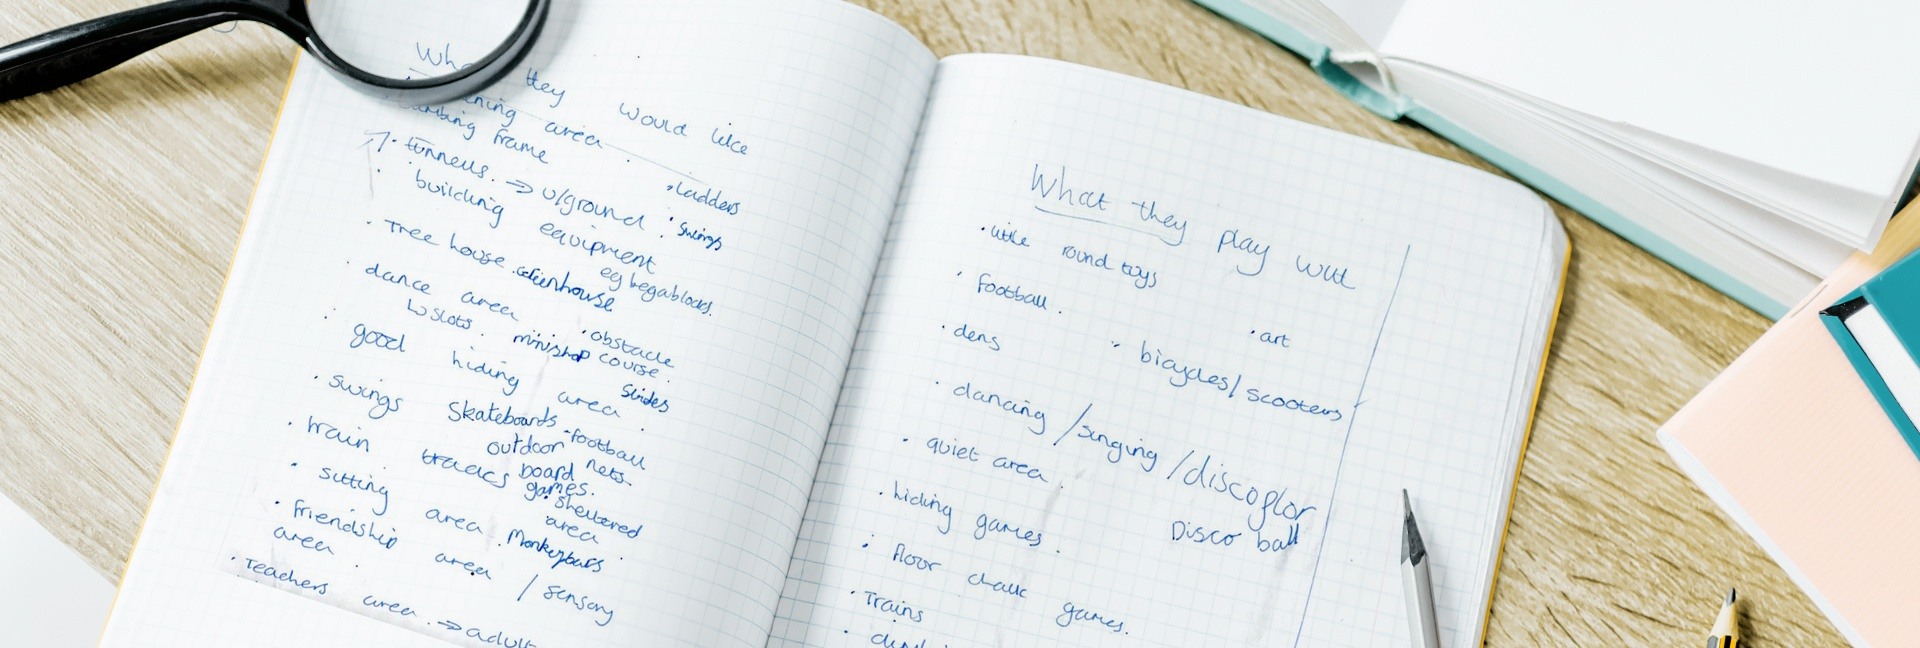 they would like
area
climbing frame
· tunnells. → u/ground
· ladders
· building equipment
· swings
eg begablocks.
· Tree house
· Greenhouse
dance area
L> slots.
· obstacle
course.
minishop
· good hiding area
Slides
· swings
Skateboards
· football
nets.
outdoor
board
games.
· train tracks
· sheltered
area
· sitting area
· Monkeybars
· friendship area / sensory
area
· Teachers area. → adult
What they play with
· little round toys
· football.
· art
· dens
· bicycles/scooters
· dancing / singing / discoflor
Disco ball
· quiet area.
· hiding games.
· floor chalk games.
· Trains